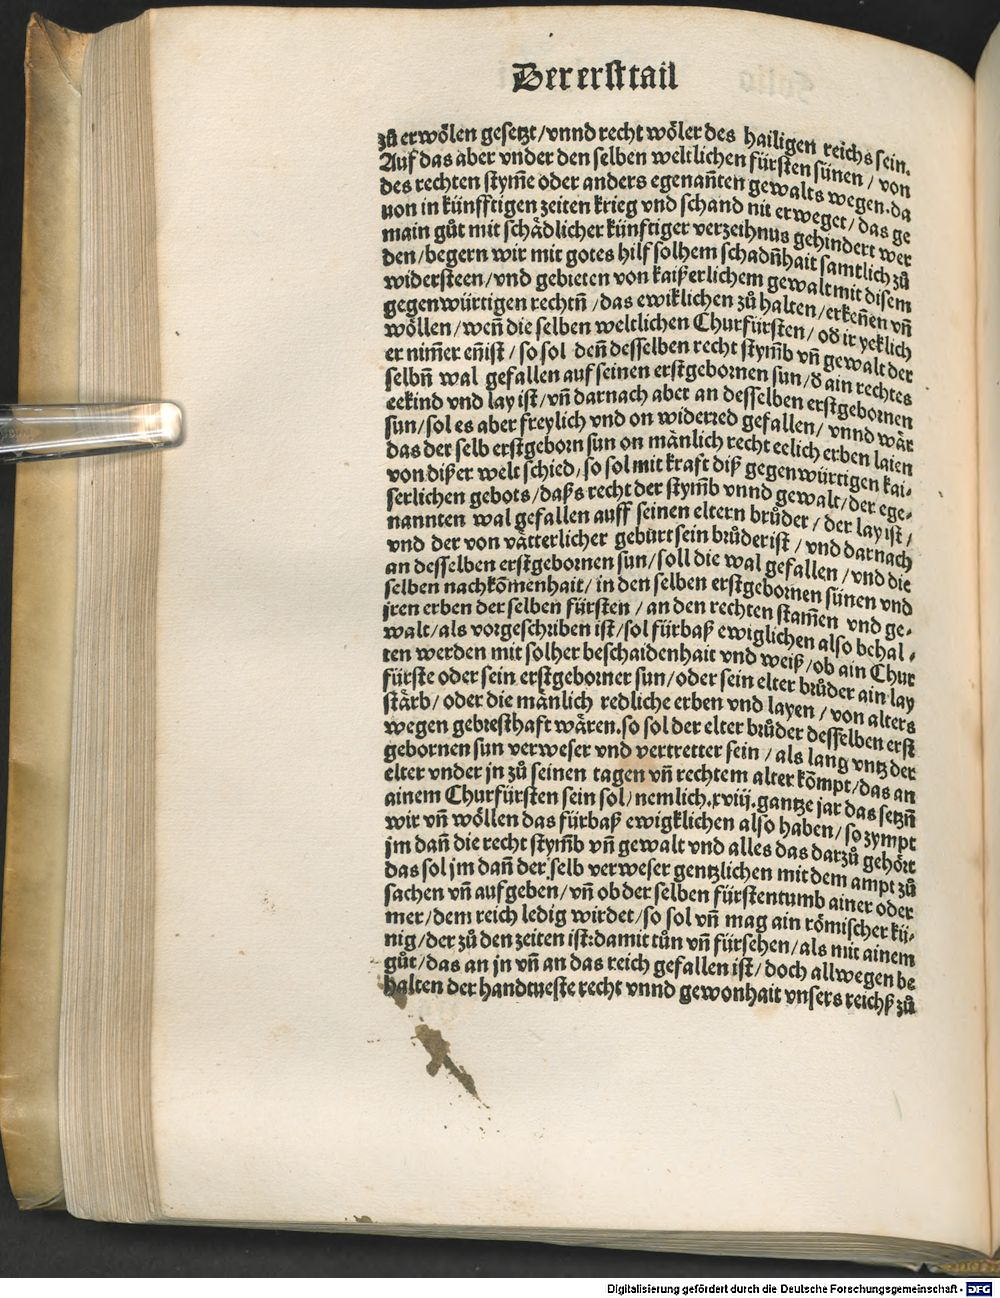 Der erst tail
zů erwölen gesetzt/vnnd recht wöler des hailigen reichs sein.
Auf das aber vnder den selben weltlichen fürsten sünen/von
des rechten stym̃e oder anders egenan̄ten gewalts wegen.da
uon in künfftigen zeiten krieg vnd schand nit erweget/das ge
main gůt mit schädlicher künftiger verzeihnus gehindert wer
den/begern wir mit gotes hilf solhem schadn̄hait samtlich zů
widersteen/vnd gebieten von kaißerlichem gewalt mit disem
gegenwürtigen rechtn̄/das ewiklichen zů halten/erken̄en vn̄
wöllen/wen̄ die selben weltlichen Churfürsten/od̓ ir yeklich
er nim̄er en̄ist/so sol den̄ desselben recht stym̄b vn̄ gewalt der
selbn̄ wal gefallen auf seinen erstgebornen sun/d̓ ain rechtes
eekind vnd lay ist/vn̄ darnach aber an desselben erstgebornen
sun/sol es aber freylich vnd on widerred gefallen/vnnd wär
das der selb erstgeborn sun on mänlich recht eelich erben laien
von dißer welt schied/so sol mit kraft diß gegenwürtigen kai⸗
serlichen gebots/daßs recht der stym̄b vnnd gewalt/der ege⸗
nannten wal gefallen auff seinen eltern brůder/der lay ist/
vnd der von vätterlicher gebürt sein brůder ist/vnd darnach
an desselben erstgebornen sun/soll die wal gefallen/vnd die
selben nachkōmenhait/in den selben erstgebornen sünen vnd
jren erben der selben fürsten/an den rechten stam̄en vnd ge⸗
walt/als vorgeschriben ist/sol fürbaß ewiglichen also behal⸗
ten werden mit solher beschaidenhait vnd weiß/ob ain Chur
fürste oder sein erstgeborner sun/oder sein elter brůder ain lay
stärb/oder die mänlich redliche erben vnd layen/von alters
wegen gebresthaft wären.so sol der elter brůder desselben erst
gebornen sun verweser vnd vertretter sein/als lang vntz der
elter vnder jn zů seinen tagen vn̄ rechtem alter kōmpt/das an
ainem Churfürsten sein sol/nemlich.xviij.gantze jar das setzn̄
wir vn̄ wöllen das fürbaß ewigklichen also haben/so zympt
jm dan̄ die recht stym̄b vn̄ gewalt vnd alles das darzů gehört
das sol jm dan̄ der selb verweser gentzlichen mit dem ampt zů
sachen vn̄ aufgeben/vn̄ ob der selben fürstentumb ainer oder
mer/dem reich ledig wirdet/so sol vn̄ mag ain römischer kü⸗
nig/der zů den zeiten ist:damit tůn vn̄ fürsehen/als mit ainem
gůt/das an jn vn̄ an das reich gefallen ist/doch allwegen be
halten der handtueste recht vnnd gewonhait vnsers reichß zů
Digitalisierung gefördert durch die Deutsche Forschungsgemeinschaft - DFG